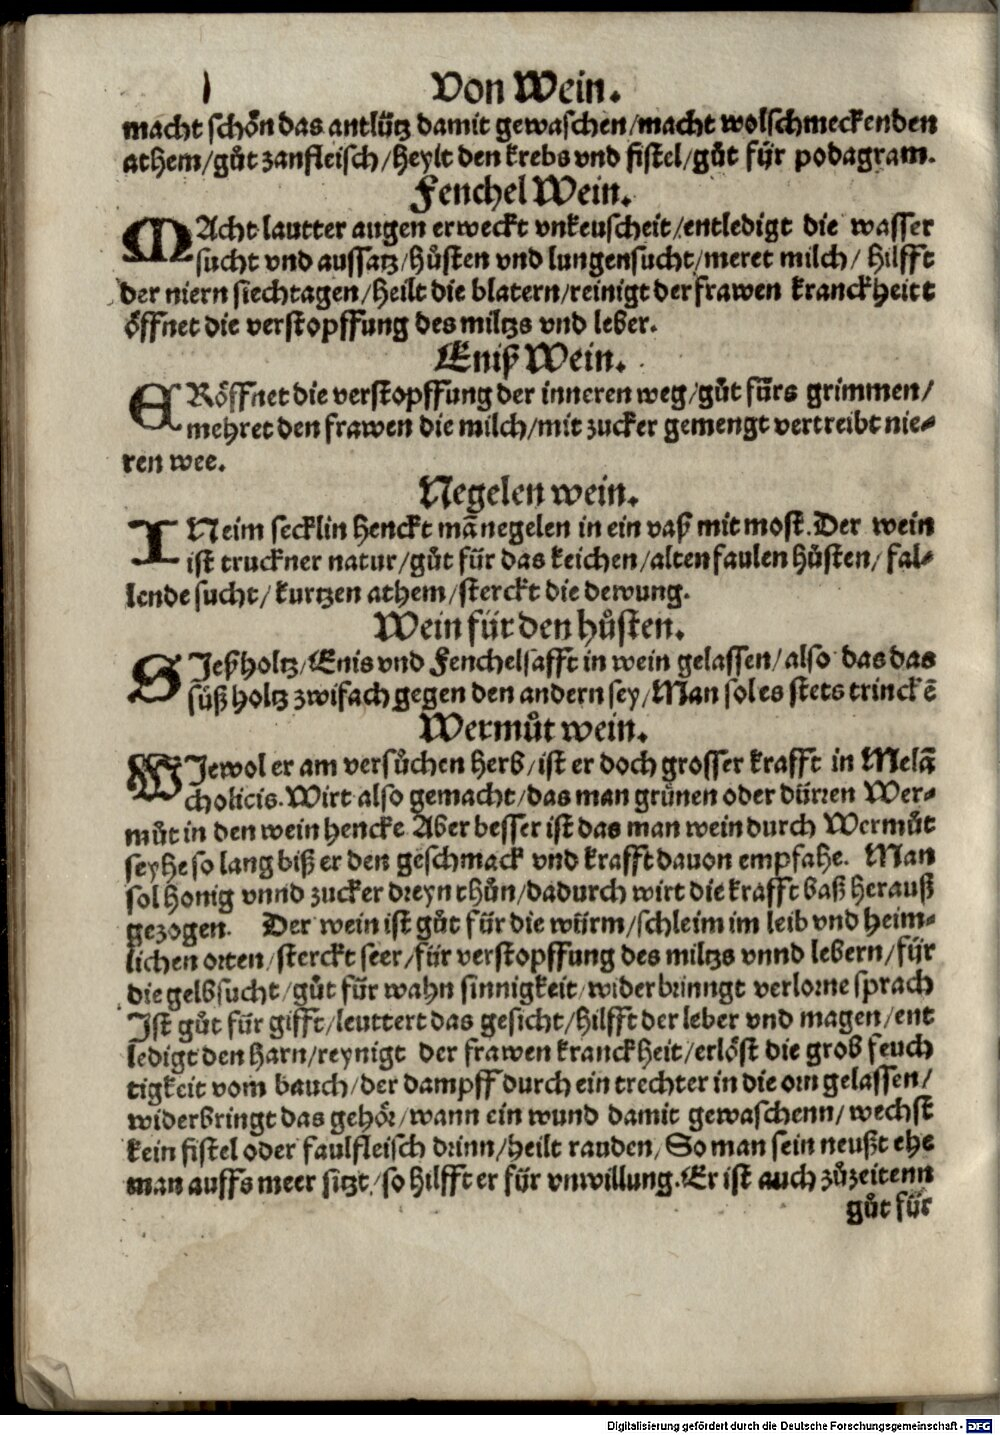 Von Wein.
macht schön das antlütz damit gewaschen/macht wolschmeckenden
athem/gůt zanfleisch/heylt den krebs vnd fistel/gůt für podagram.
Fenchel Wein.
MAcht lautter augen erweckt vnkeuscheit/entledigt die wasser
sucht vnd aussatz/hůsten vnd lungensucht/meret milch/ hilfft
der niern siechtagen/heilt die blatern/reinigt der frawen kranckheitt
öffnet die verstopffung des miltzs vnd leber.
Eniß Wein.
ERöffnet die verstopffung der inneren weg/gůt fürs grimmen/
mehret den frawen die milch/mit zucker gemengt vertreibt nie-
ren wee.
Negelen wein.
INeim secklin henckt mā negelen in ein vaß mit most. Der wein
ist truckner natur/gůt für das keichen/alten faulen hůsten/ fal-
lende sucht/ kurtzen athem/sterckt die dewung.
Wein für den hůsten.
SIeßholtz/Enis vnd Fenchelsafft in wein gelassen/also das das
süßholtz zwifach gegen den andern sey/Man sol es stets trinckē
Wermůt wein.
WIewol er am versůchen herb/ist er doch grosser krafft in Melā
cholicis. Wirt also gemacht/das man grůnen oder dürren Wer-
můt in den wein hencke. Aber besser ist das man wein durch Wermůt
seyhe so lang biß er den geschmack vnd krafft dauon empfahe. Man
sol honig vnnd zucker dreyn thůn/dadurch wirt die krafft baß herauß
gezogen. Der wein ist gůt für die würm/schleim im leib vnd heim-
lichen orten/sterckt seer/für verstopffung des miltzs vnnd lebern/für
die gelbsucht/gůt für wahn sinnigkeit/widerbrinngt verlorne sprach
Ist gůt für gifft/leuttert das gesicht/hilfft der leber vnd magen/ent
ledigt den harn/reynigt der frawen kranckheit/erlöst die grob feuch
tigkeit vom bauch/der dampff durch ein trechter in die orn gelassen/
widerbringt das gehör/wann ein wund damit gewaschenn/wechst
kein fistel oder faulfleisch drinn/heilt rauden/So man sein neußt ehe
man auffs meer sitzt/so hilfft er für vnwillung. Er ist auch zůzeitenn
gůt für
Digitalisierung gefördert durch die Deutsche Forschungsgemeinschaft - DFG